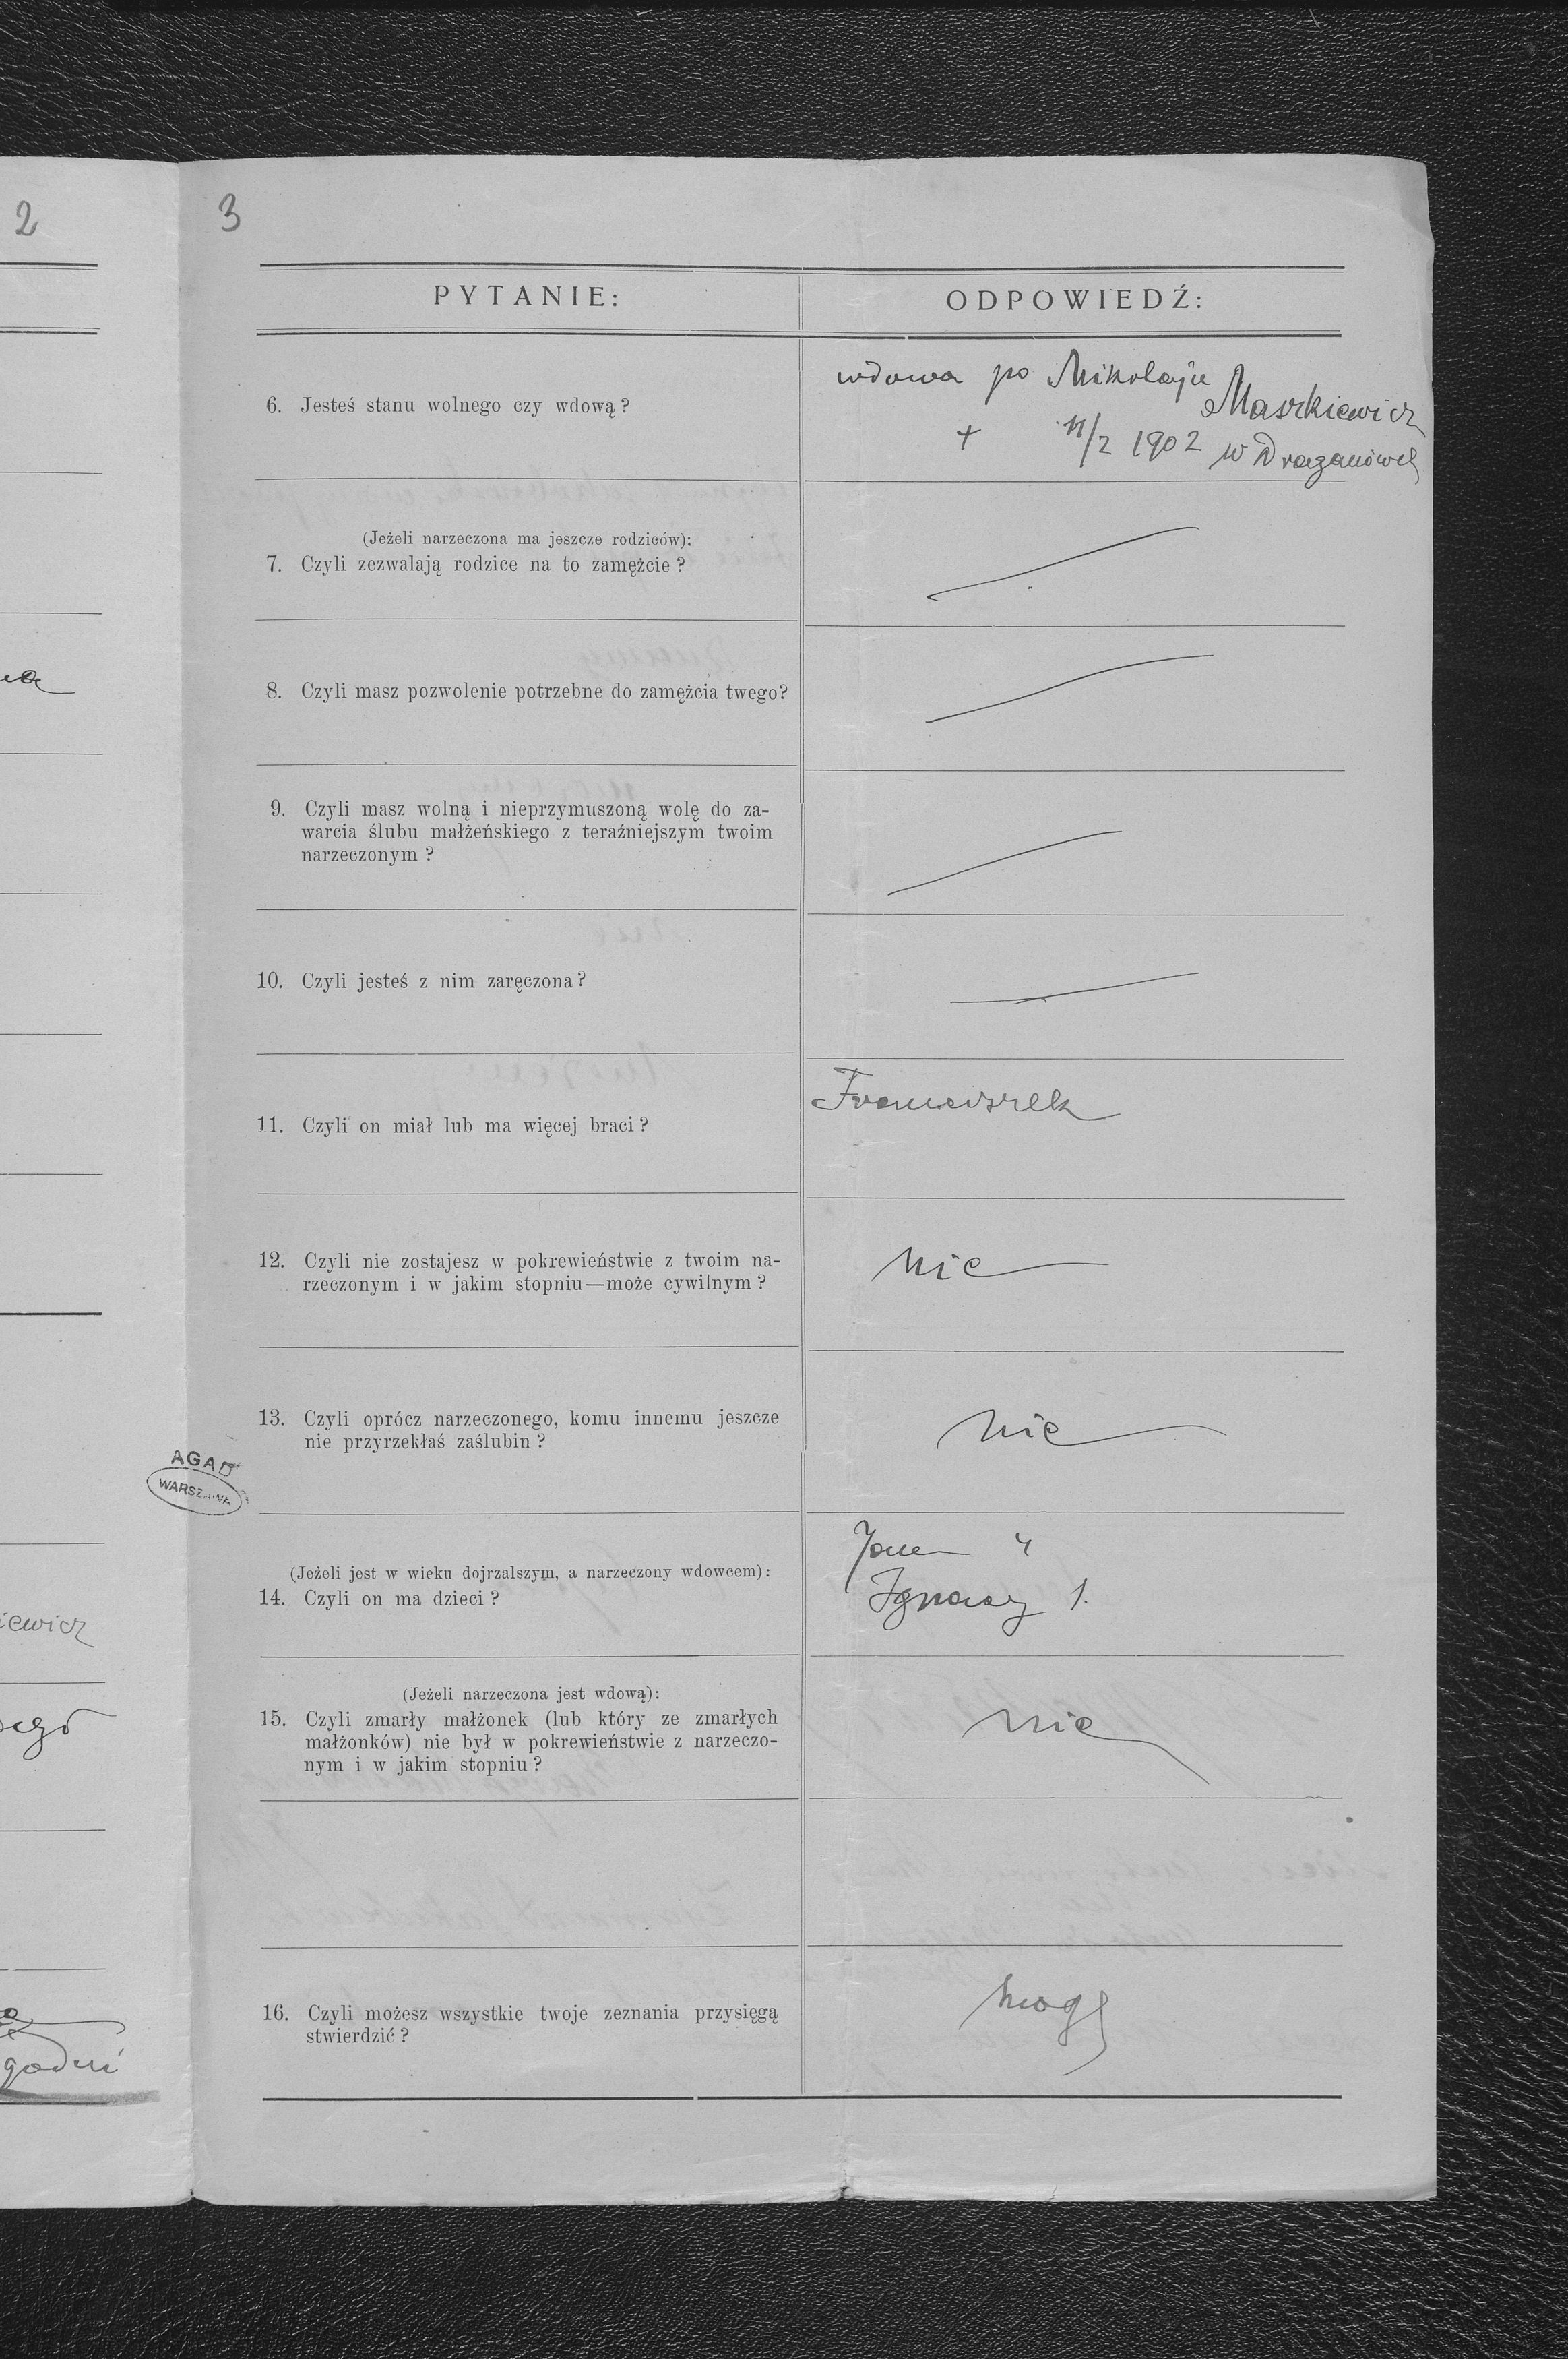 2
3
PYTANIE: ODPOWIEDŹ:
wdowa po Mikołaju
6. Jesteś stanu wolnego czy wdową? Maszkiewicz
+ 11/2 1902 w Draganówce
(Jeżeli narzeczona ma jeszcze rodziców):
7. Czyli zezwalają rodzice na to zamężcie?
8. Czyli masz pozwolenie potrzebne do zamężcia twego?
9. Czyli masz wolną i nieprzymuszoną wolę do za-
warcia ślubu małżeńskiego z teraźniejszym twoim
narzeczonym?
10. Czyli jesteś z nim zaręczona?
Franciszek
11. Czyli on miał lub ma więcej braci?
12. Czyli nie zostajesz w pokrewieństwie z twoim na- nie
rzeczonym i w jakim stopniu—może cywilnym?
13. Czyli oprócz narzeczonego, komu innemu jeszcze nie
nie przyrzekłaś zaślubin?
AGAD
WARSZAWA
Jan 4
(Jeżeli jest w wieku dojrzalszym, a narzeczony wdowcem):
14. Czyli on ma dzieci? Ignacy 1.
iewicz
(Jeżeli narzeczona jest wdową):
15. Czyli zmarły małżonek (lub który ze zmarłych nie
małżonków) nie był w pokrewieństwie z narzeczo-
nym i w jakim stopniu?
16. Czyli możesz wszystkie twoje zeznania przysięgą mogę
stwierdzić?